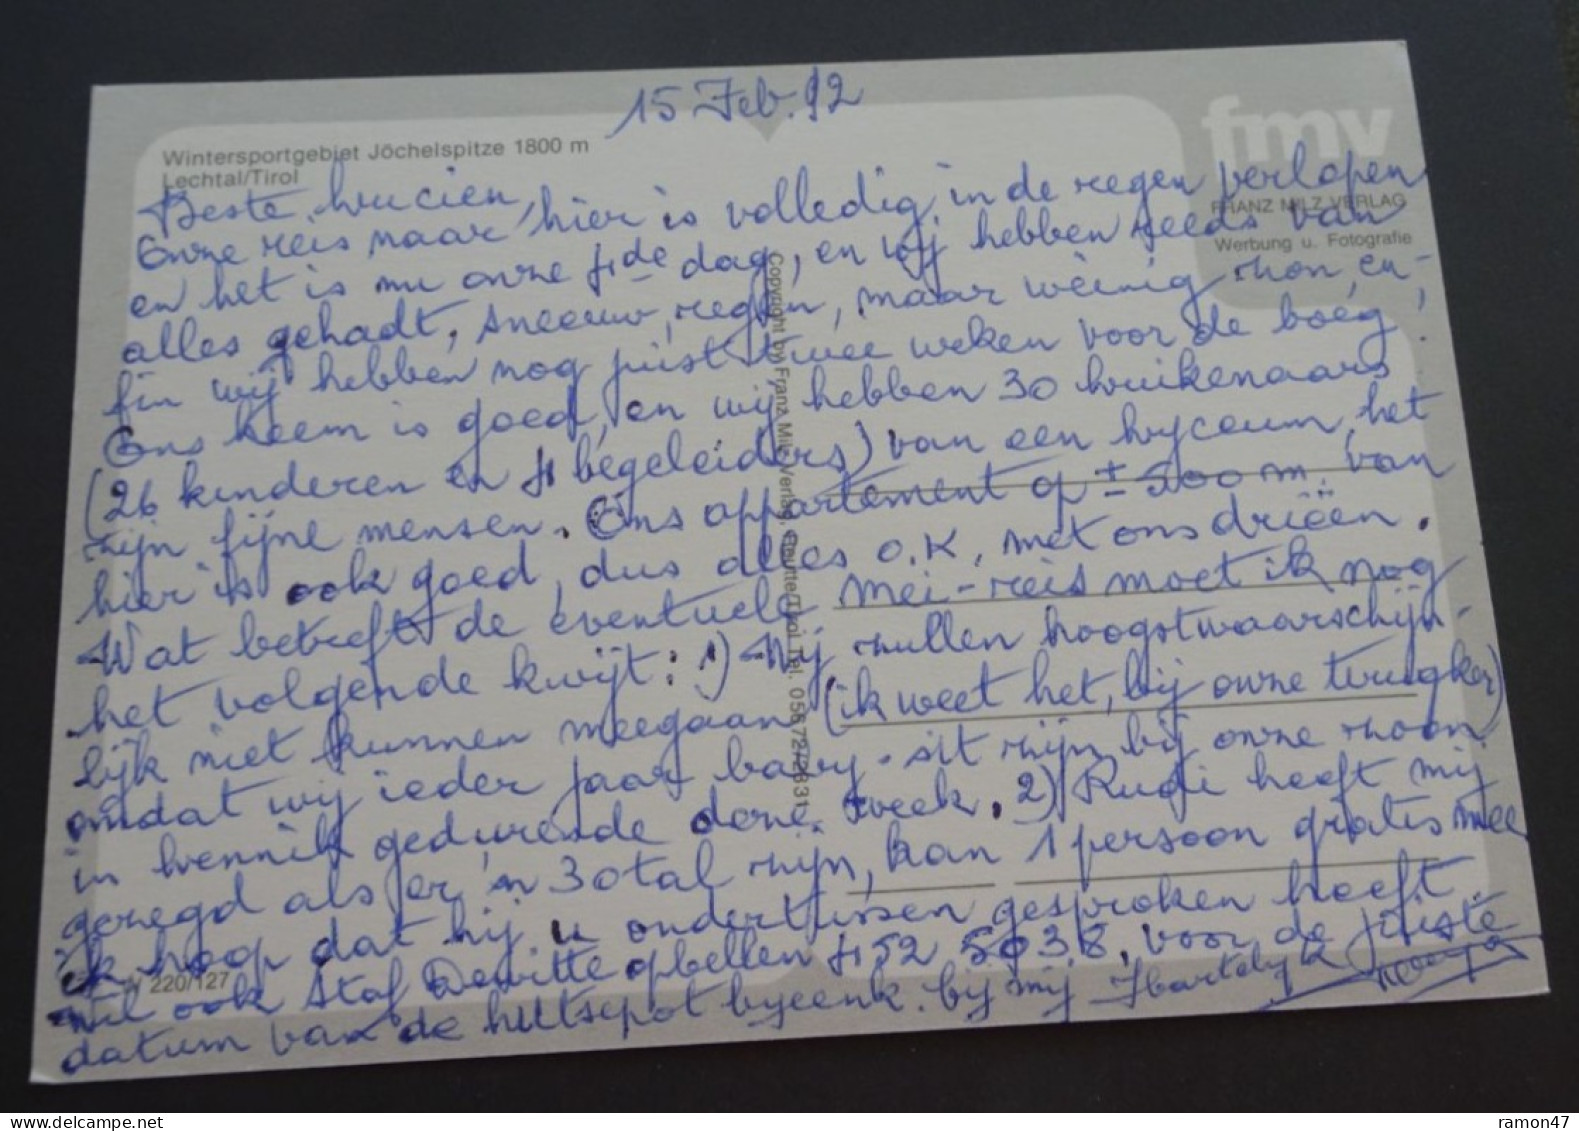 15 Feb. 92
fmv
Wintersportgebiet Jöchelspitze 1800 m
Lechtal/Tirol
FRANZ MILZ VERLAG
Werbung u. Fotografie
Beste Lucien,
Onze reis naar hier is volledig in de regen verlopen
en het is nu onze 4de dag, en wij hebben reeds van
alles gehadt, sneeuw, regen, maar weinig zon, en-
fin wij hebben nog juist twee weken voor de boeg!
Ons heem is goed, en wij hebben 30 bruikenaars
(26 kinderen en 4 begeleiders) van een lyceum, het
zijn fijne mensen. Ons appartement op ± 500 m. van
hier is ook goed, dus alles O.K. met ons drieën.
Wat betreft de eventuele mei-reis moet ik nog
het volgende kwijt: 1) Wij zullen hoogstwaarschijn-
lijk niet kunnen meegaan (ik weet het, bij onze terugker)
omdat wij ieder jaar baby-sit zijn bij onze zoon
in Lennik gedurende deze week. 2) Rudi heeft mij
gezegd als er 'n 30 tal zijn, kan 1 persoon gratis mee
Ik hoop dat hij u ondertussen gesproken heeft.
Wil ook Staf Dewitte opbellen 452 50 38, voor de juiste
datum van de hutsepot bijeenk. bij mij Hartelijk
220/127
Copyright by Franz Milz Verlag, Reutte/Tirol, Tel. 05672/2831
ramon47